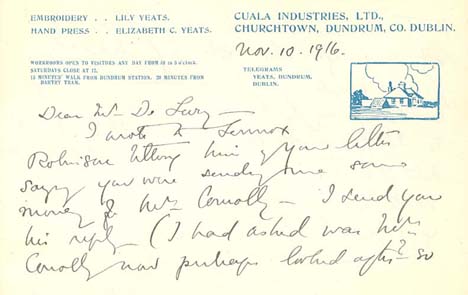 EMBROIDERY . . LILY YEATS.
HAND PRESS . . ELIZABETH C. YEATS.
CUALA INDUSTRIES, LTD.,
CHURCHTOWN, DUNDRUM, CO. DUBLIN.
Nov. 10. 1916.
WORKROOMS OPEN TO VISITORS ANY DAY FROM 10 to 5 o'clock.
SATURDAYS CLOSE AT 12.
15 MINUTES' WALK FROM DUNDRUM STATION. 20 MINUTES FROM
DARTRY TRAM.
TELEGRAMS
YEATS, DUNDRUM,
DUBLIN.
Dear Mr De Lury —
I wrote to Lennox
Robinson telling him of your letter
saying you were sending me some
money for Mrs Connolly — I send you
his reply — (I had asked was Mrs
Conolly now perhaps looked after? — so